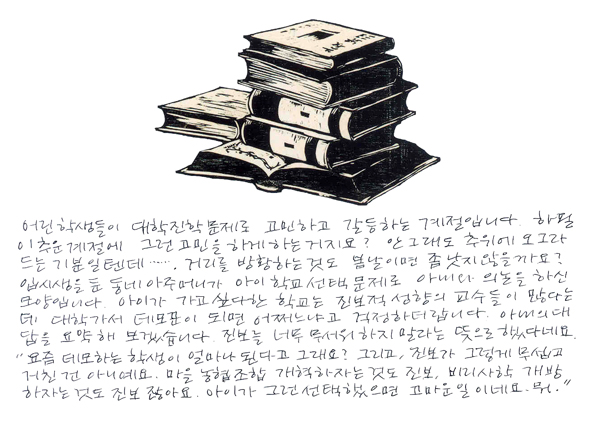 어린 학생들이 대학진학문제로 고민하고 갈등하는 계절입니다. 하필
이 추운 계절에 그런 고민을 하게 하는 거지요? 안 그래도 추위에 오그라
드는 기분일텐데……. 거리를 방황하는 것도 봄날이면 좀 낫지 않을까요?
입시생을 둔 동네 아주머니가 아이 학교 선택 문제로 아내와 의논을 하신
모양입니다. 아이가 가고 싶다한 학교는 진보적 성향의 교수들이 많다는
데 대학가서 데모꾼이 되면 어쩌느냐고 걱정하더랍니다. 아내의 대
답을 요약해 보겠습니다. 진보를 너무 무서워하지 말라는 뜻으로 했다네요.
"요즘 데모하는 학생이 얼마나 된다고 그래요? 그리고, 진보가 그렇게 무섭고
거친 건 아니예요. 마을 농협조합 개혁하자는 것도 진보, 비리사학 개방
하자는 것도 진보잖아요. 아이가 그런 선택했으면 고마운 일이네요. 뭐."